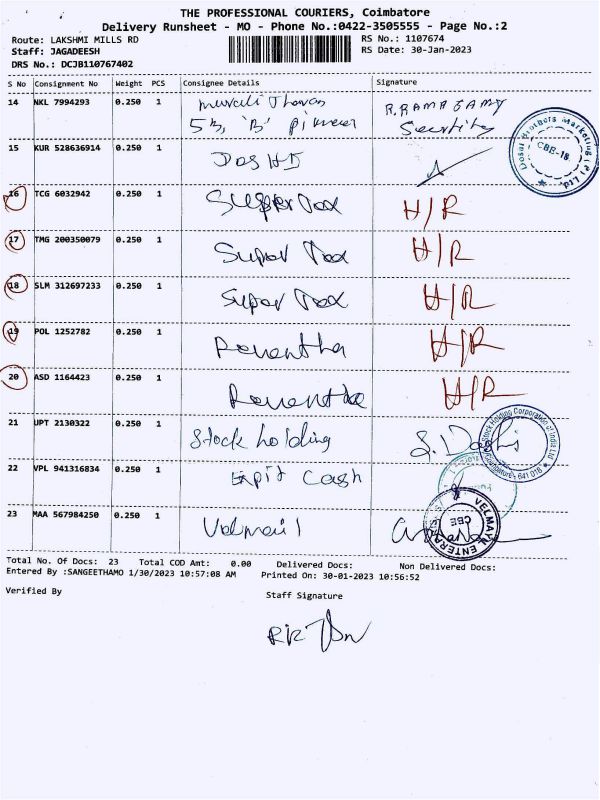 THE PROFESSIONAL COURIERS, Coimbatore
Delivery Runsheet - MO - Phone No.:0422-3505555 - Page No.:2
Route: LAKSHMI MILLS RD
RS No.: 1107674
Staff: JAGADEESH
RS Date: 30-Jan-2023
DRS No.: DCJB110767402
S No Consignment No Weight PCS Consignee Details Signature
14 NKL 7994293 0.250 1 Murali R.RAMASAMY
5B, 'B' Security
15 KUR 528636914 0.250 1
Dosai Brothers Marketing (P) Ltd.
CBE-18
16 TCG 6032942 0.250 1 Super Tax H/R
17 TMG 200350079 0.250 1 Super Tax H/R
18 SLM 312697233 0.250 1 Super Tax H/R
19 POL 1252782 0.250 1 Revantha H/R
20 ASD 1164423 0.250 1 Revantha H/R
21 UPT 2130322 0.250 1 Stock holding
Stock Holding Corporation of India Ltd
Coimbatore - 641 018
22 VPL 941316834 0.250 1 Cash
23 MAA 567984250 0.250 1
CBE
Total No. Of Docs: 23 Total COD Amt: 0.00 Delivered Docs: Non Delivered Docs:
Entered By :SANGEETHAMO 1/30/2023 10:57:08 AM Printed On: 30-01-2023 10:56:52
Verified By Staff Signature